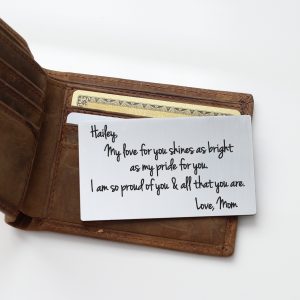 Hailey,
My love for you shines as bright
as my pride for you.
I am so proud of you & all that you are.
Love, Mom